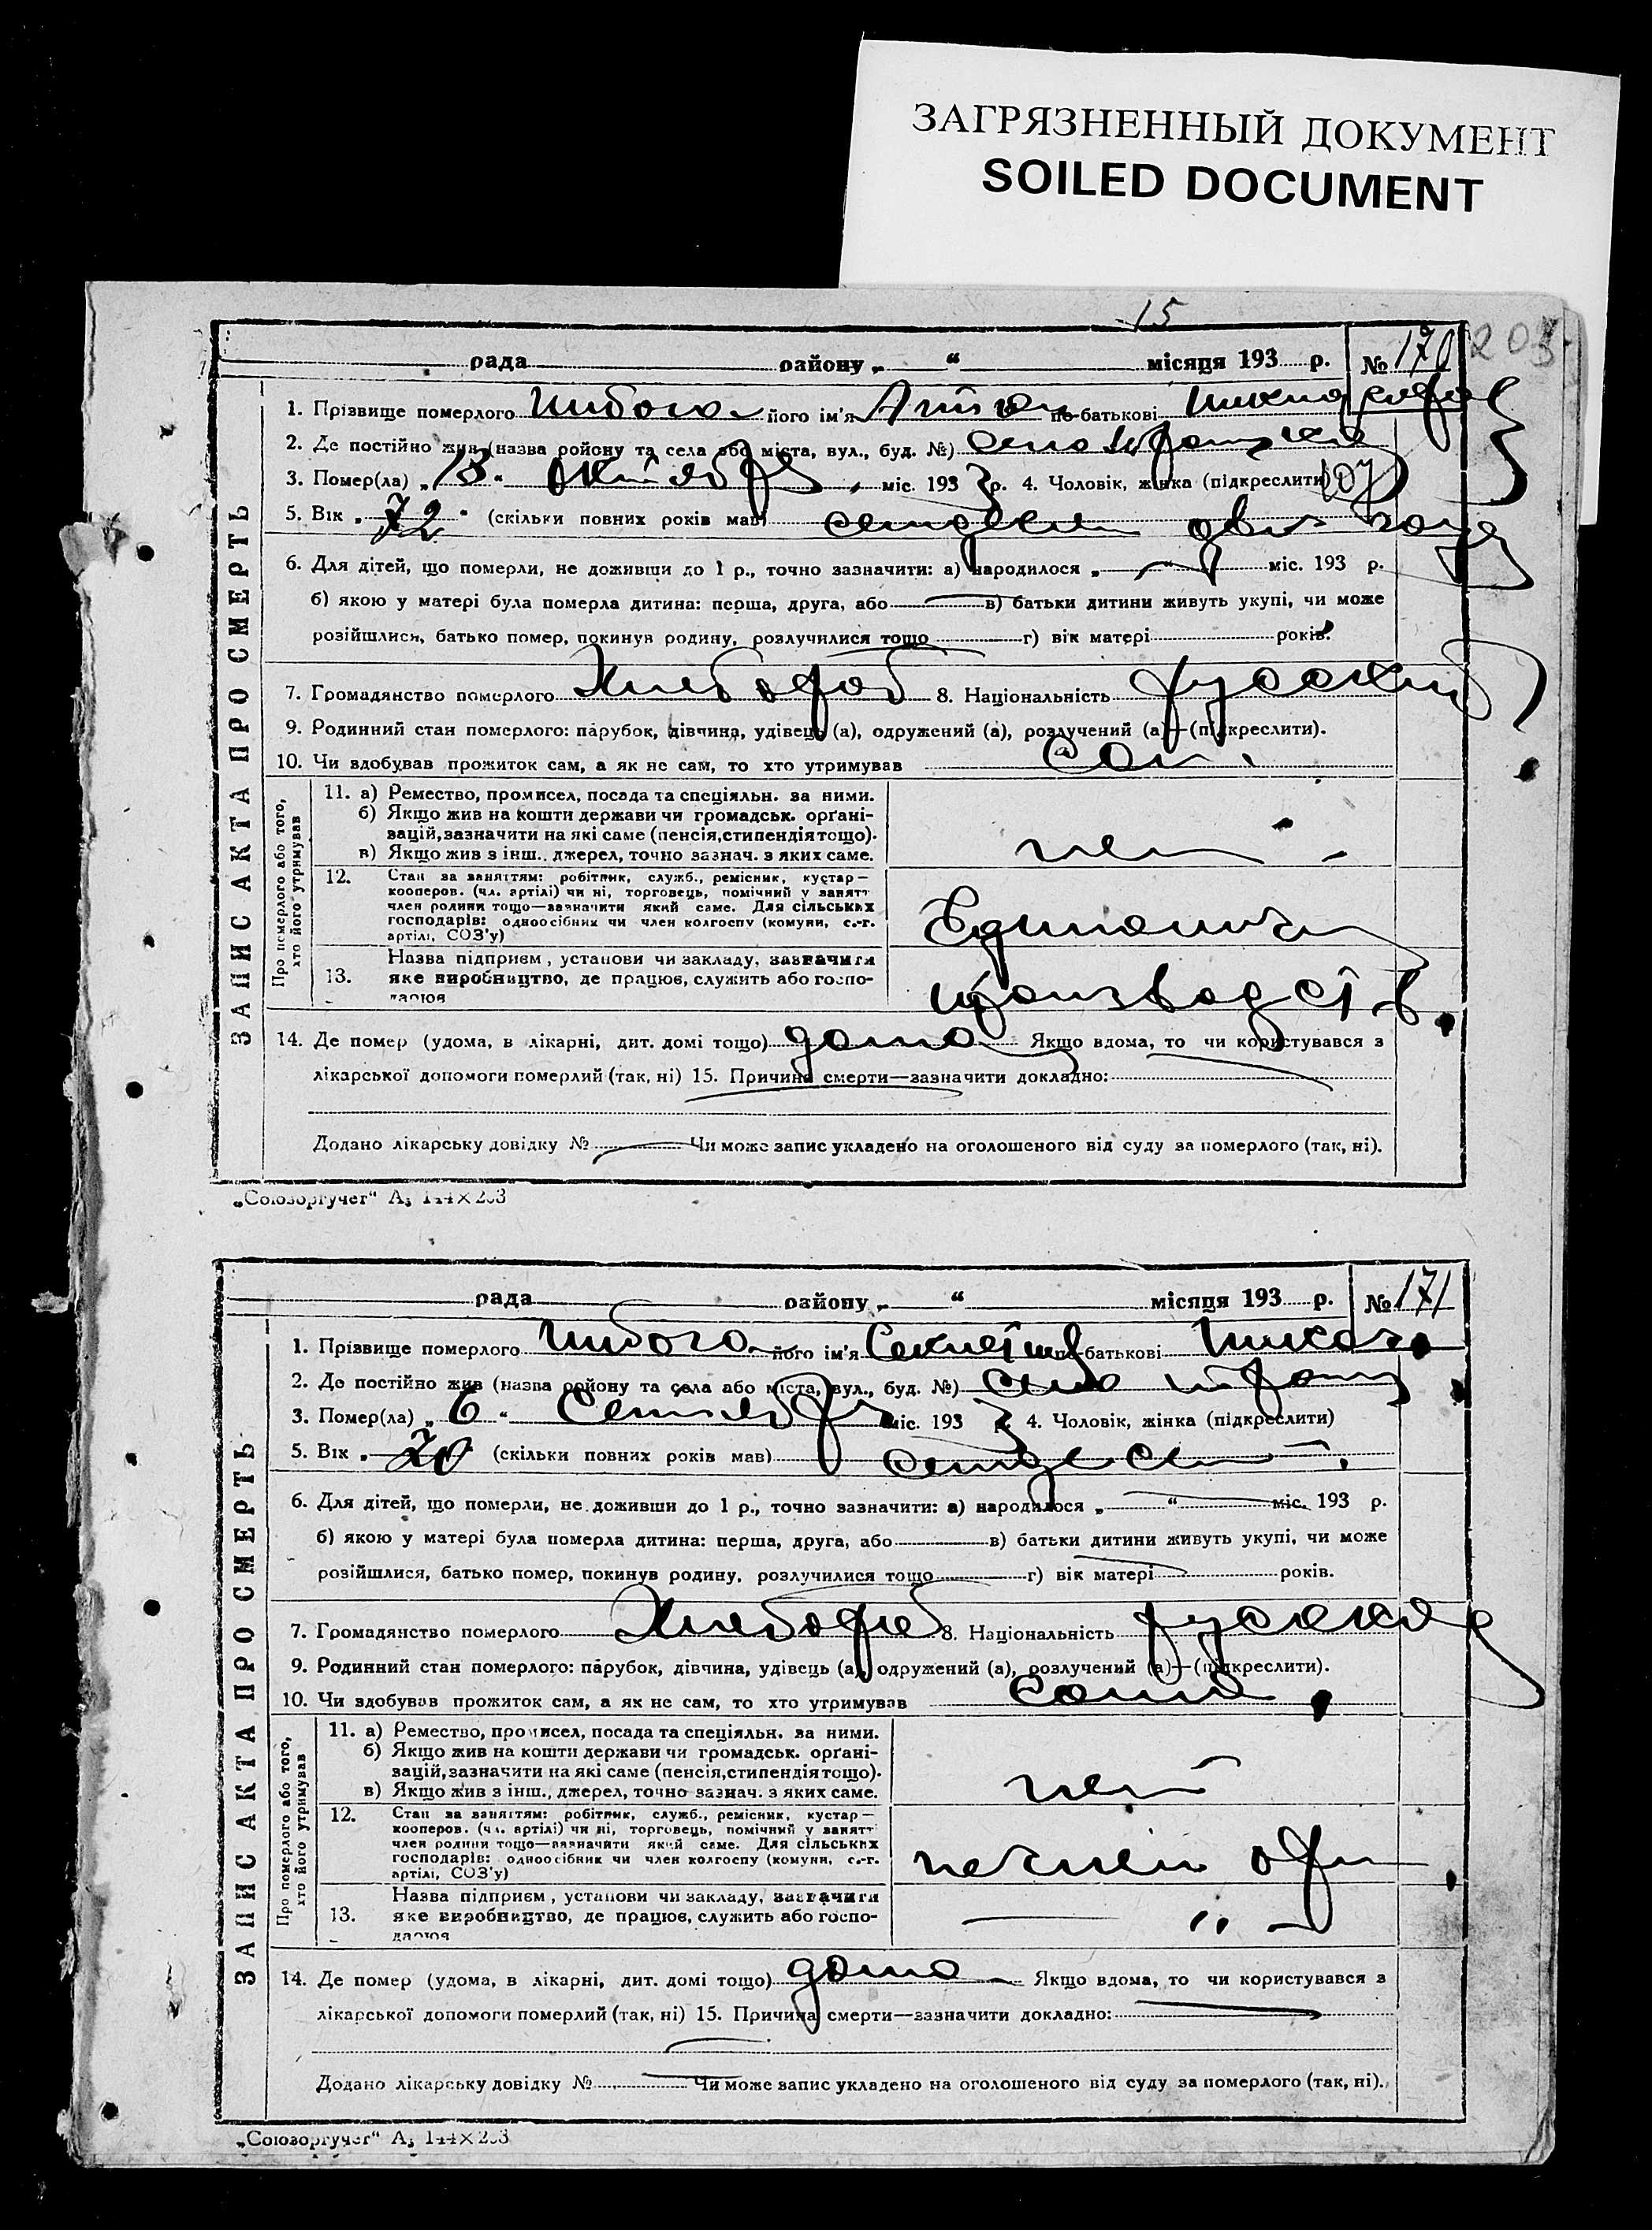 ЗАГРЯЗНЕННЫЙ ДОКУМЕНТ
SOILED DOCUMENT
15
203
рада району „ “ місяця 193 р. № 170
ЗАПИС АКТА ПРО СМЕРТЬ
1. Прізвище померлого його ім'я по-батькові
2. Де постійно жив (назва ройону та села або міста, вул., буд. №) село
3. Помер(ла) „ “ Октября міс. 193 3 р. 4. Чоловік, жінка (підкреслити)
5. Вік „ 72 “ (скільки повних років мав) семдесят два года
6. Для дітей, що померли, не доживши до 1 р., точно зазначити: а) народилося „ “ міс. 193 р.
б) якою у матері була померла дитина: перша, друга, або в) батьки дитини живуть укупі, чи може
розійшлися, батько помер, покинув родину, розлучилися тощо г) вік матері років.
7. Громадянство померлого Хлебороб 8. Національність русский
9. Родинний стан померлого: парубок, дівчина, удівець (а), одружений (а), розлучений (а)—(підкреслити).
10. Чи здобував прожиток сам, а як не сам, то хто утримував сам
Про померлого або того, хто його утримував
11. а) Ремество, промисел, посада та спеціяльн. за ними.
б) Якщо жив на кошти держави чи громадськ. орґані-
зацій, зазначити на які саме (пенсія, стипендія тощо).
в) Якщо жив з інш. джерел, точно зазнач. з яких саме.
нет
12. Стан за заняттям: робітник, служб., ремісник, кустар—
кооперов. (чл. артілі) чи ні, торговець, помічний у занятт
член родини тощо—зазначити який саме. Для сільських
господарів: одноосібник чи член колгоспу (комуни, с.-г.
артілі, СОЗ'у)
13. Назва підприєм, установи чи закладу, зазначити
яке виробництво, де працює, служить або госпо-
дарює
14. Де помер (удома, в лікарні, дит. домі тощо) дома Якщо вдома, то чи користувався з
лікарської допомоги померлий (так, ні) 15. Причина смерти—зазначити докладно:
Додано лікарську довідку № Чи може запис укладено на оголошеного від суду за померлого (так, ні).
„Союзоргучет“ А₅ 144×203
рада району „ “ місяця 193 р. № 171
ЗАПИС АКТА ПРО СМЕРТЬ
1. Прізвище померлого його ім'я по-батькові
2. Де постійно жив (назва ройону та села або міста, вул., буд. №) село
3. Помер(ла) „ 6 “ Сентября міс. 193 3 4. Чоловік, жінка (підкреслити)
5. Вік „ 70 “ (скільки повних років мав) семдесят
6. Для дітей, що померли, не доживши до 1 р., точно зазначити: а) народилося „ “ міс. 193 р.
б) якою у матері була померла дитина: перша, друга, або в) батьки дитини живуть укупі, чи може
розійшлися, батько помер, покинув родину, розлучилися тощо г) вік матері років.
7. Громадянство померлого Хлебороб 8. Національність
9. Родинний стан померлого: парубок, дівчина, удівець (а), одружений (а), розлучений (а)—(підкреслити).
10. Чи здобував прожиток сам, а як не сам, то хто утримував сама
Про померлого або того, хто його утримував
11. а) Ремество, промисел, посада та спеціяльн. за ними.
б) Якщо жив на кошти держави чи громадськ. орґані-
зацій, зазначити на які саме (пенсія, стипендія тощо).
в) Якщо жив з інш., джерел, точно зазнач. з яких саме.
нет
12. Стан за заняттям: робітник, служб., ремісник, кустар—
кооперов. (чл. артілі) чи ні, торговець, помічний у занятт
член родини тощо—зазначити який саме. Для сільських
господарів: одноосібник чи член колгоспу (комуни, с.-г.
артілі, СОЗ'у)
13. Назва підприєм, установи чи закладу, зазначити
яке виробництво, де працює, служить або госпо-
дарює
14. Де помер (удома, в лікарні, дит. домі тощо) дома Якщо вдома, то чи користувався з
лікарської допомоги померлий (так, ні) 15. Причина смерти—зазначити докладно:
Додано лікарську довідку № Чи може запис укладено на оголошеного від суду за померлого (так, ні).
„Союзоргучет“ А₅ 144×203